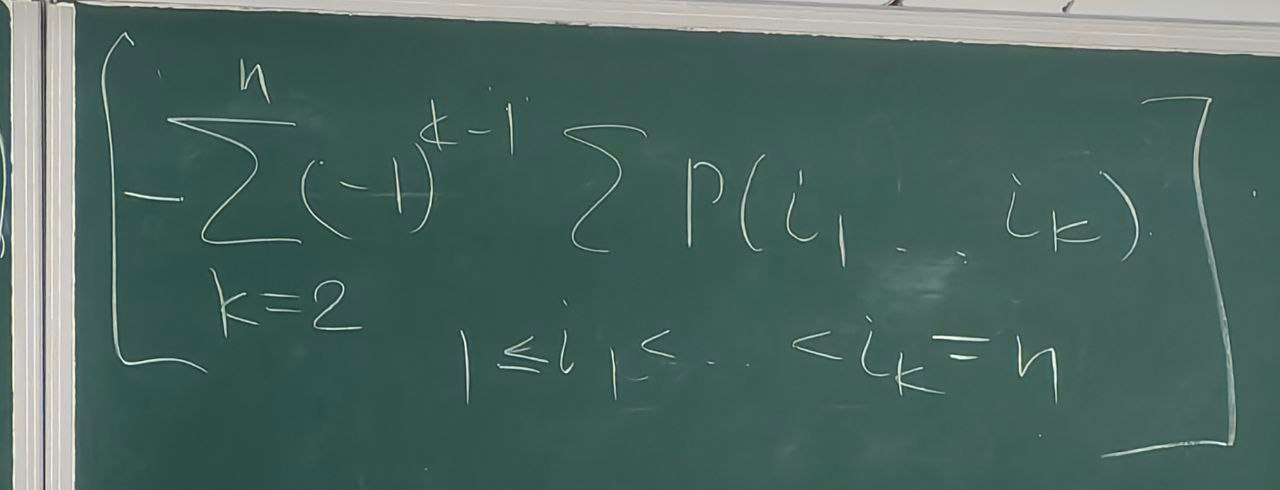 [-\sum_{k=2}^{n} (-1)^{k-1} \sum_{1 \le i_1 < \ldots < i_k = n} P(i_1 \ldots i_k)]